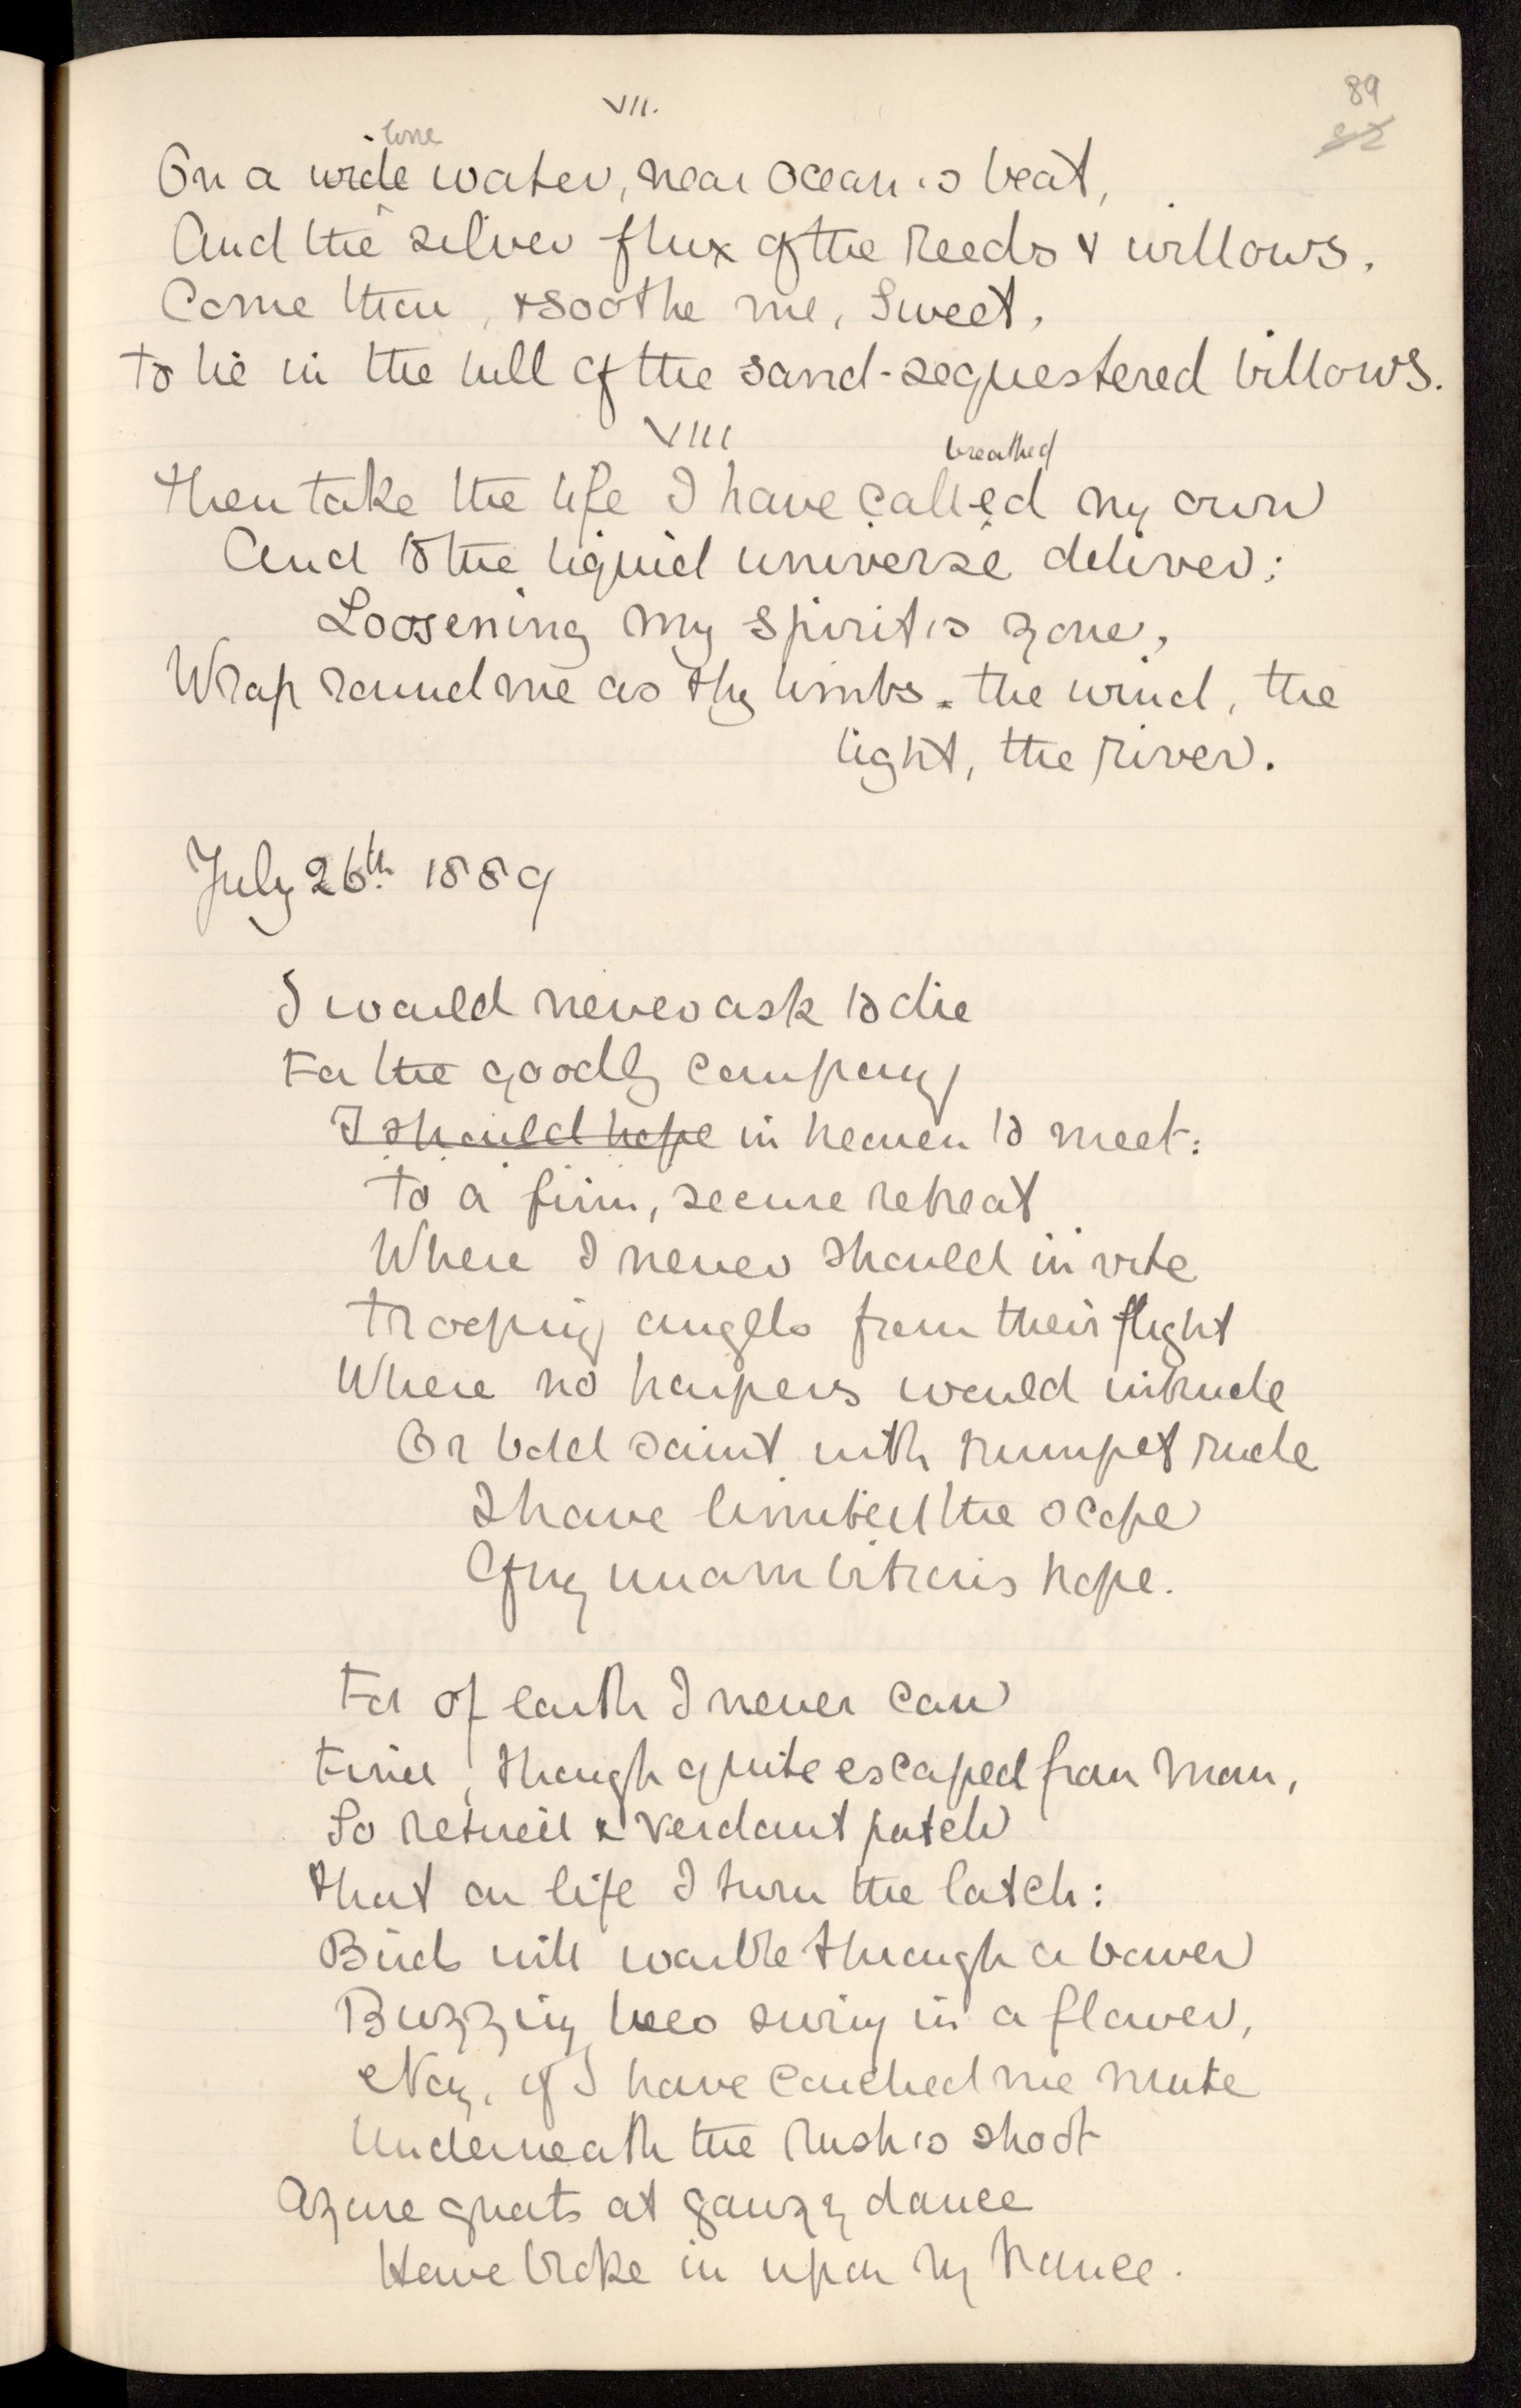 89
82
VII.
lone
On a wide water, near ocean's beat,
And the silver flux of the reeds & willows,
Come then, & soothe me, Sweet,
To lie in the lull of the sand-sequestered billows.
VIII
breathed
Then take the life I have called my own
And to the liquid universe deliver;
Loosening my spirit's zone,
Wrap round me as thy limbs the wind, the
light, the river.
July 26th 1889
I would never ask to die
For the goodly company
I should hope in heaven to meet:
To a firm, secure retreat
Where I never should invite
Trooping angels from their flight
Where no harpers would intrude
Or bold saint with trumpet rude
I have limited the scope
Of my unambitious hope.
For of earth I never can
Find, though quite escaped from man,
So retired & verdant patch
That on life I turn the latch:
Birds will warble through a bower
Buzzing bees swing in a flower,
Nay, if I have couched me mute
Underneath the rush's shoot
Azure gnats at gauzy dance
Have broke in upon my trance.